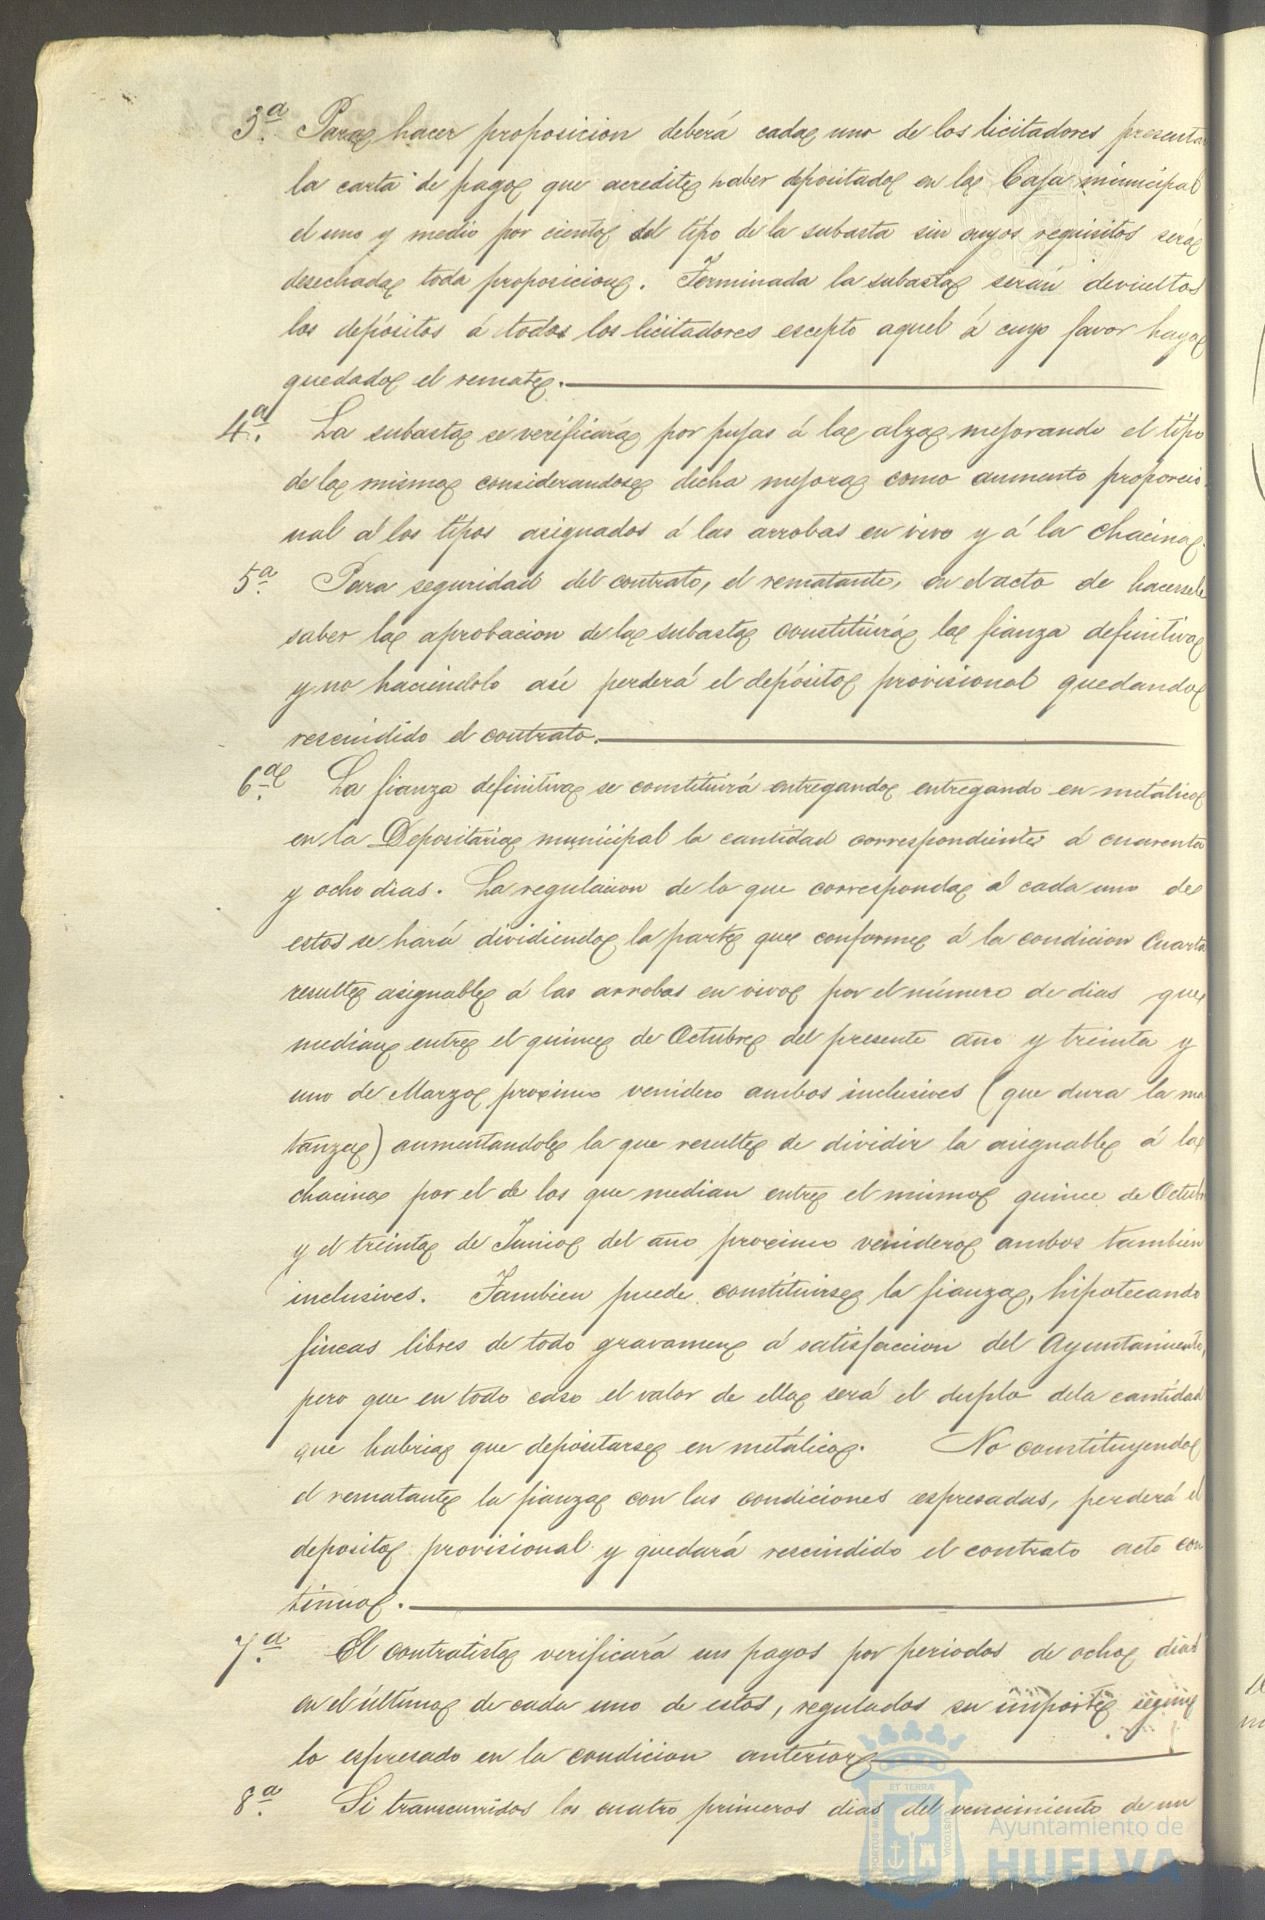 3.ª Para hacer proposicion deberá cada uno de los licitadores presentar
la carta de pago que acredite haber depositado en la Caja municipal
el uno y medio por ciento del tipo de la subasta sin cuyos requisitos será
desechada toda proposicion. Terminada la subasta serán devueltos
los depósitos á todos los licitadores escepto aquel á cuyo favor haya
quedado el remate.
4.ª La subasta se verificará por pujas á la alza mejorando el tipo
de la misma considerandose dicha mejora como aumento proporcio
nal á los tipos asignados á las arrobas en vivo y á la chacina.
5.ª Para seguridad del contrato, el rematante, en el acto de hacersele
saber la aprobacion de la subasta constituirá la fianza definitiva
y no haciendolo asi perderá el depósito provisional quedando
rescindido el contrato.
6.ª La fianza definitiva se constituirá entregando entregando en metálico
en la Depositaria municipal la cantidad correspondiente á cuarenta
y ocho dias. La regulacion de lo que corresponda á cada uno de
estos se hará dividiendo la parte que conforme á la condicion cuarta
resulte asignable á las arrobas en vivo por el número de dias que
median entre el quince de Octubre del presente año y treinta y
uno de Marzo proximo venidero ambos inclusives (que dura la ma
tanza) aumentandole la que resulte de dividir la asignable á la
chacina por el de los que median entre el mismo quince de Octubre
y el treinta de Junio del año proximo venidero ambos tambien
inclusives. Tambien puede constituirse la fianza, hipotecando
fincas libres de todo gravamen á satisfaccion del Ayuntamiento,
pero que en todo caso el valor de ella será el duplo de la cantidad
que habria que depositarse en metálico. No constituyendo
el rematante la fianza con las condiciones espresadas, perderá el
deposito provisional y quedará rescindido el contrato acto con
tinuo.
7.ª El contratista verificará sus pagos por periodos de ocho dias
en el último de cada uno de estos, regulados su importe segun
lo espresado en la condicion anterior
8.ª Si transcurridos los cuatro primeros dias del vencimiento de un
ET TERRÆ
PORTUS MARIS
CUSTODIA
Ayuntamiento de
HUELVA